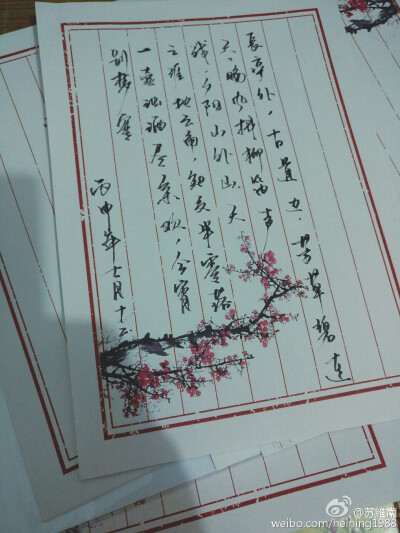 長亭外，古道边，芳草碧连
天，晚风拂柳笛声
残，夕阳山外山，天
之涯地之角，知交半零落
一壶浊酒尽余欢，今宵
别梦寒
丙申年七月十二
@苏维南
weibo.com/neining1988